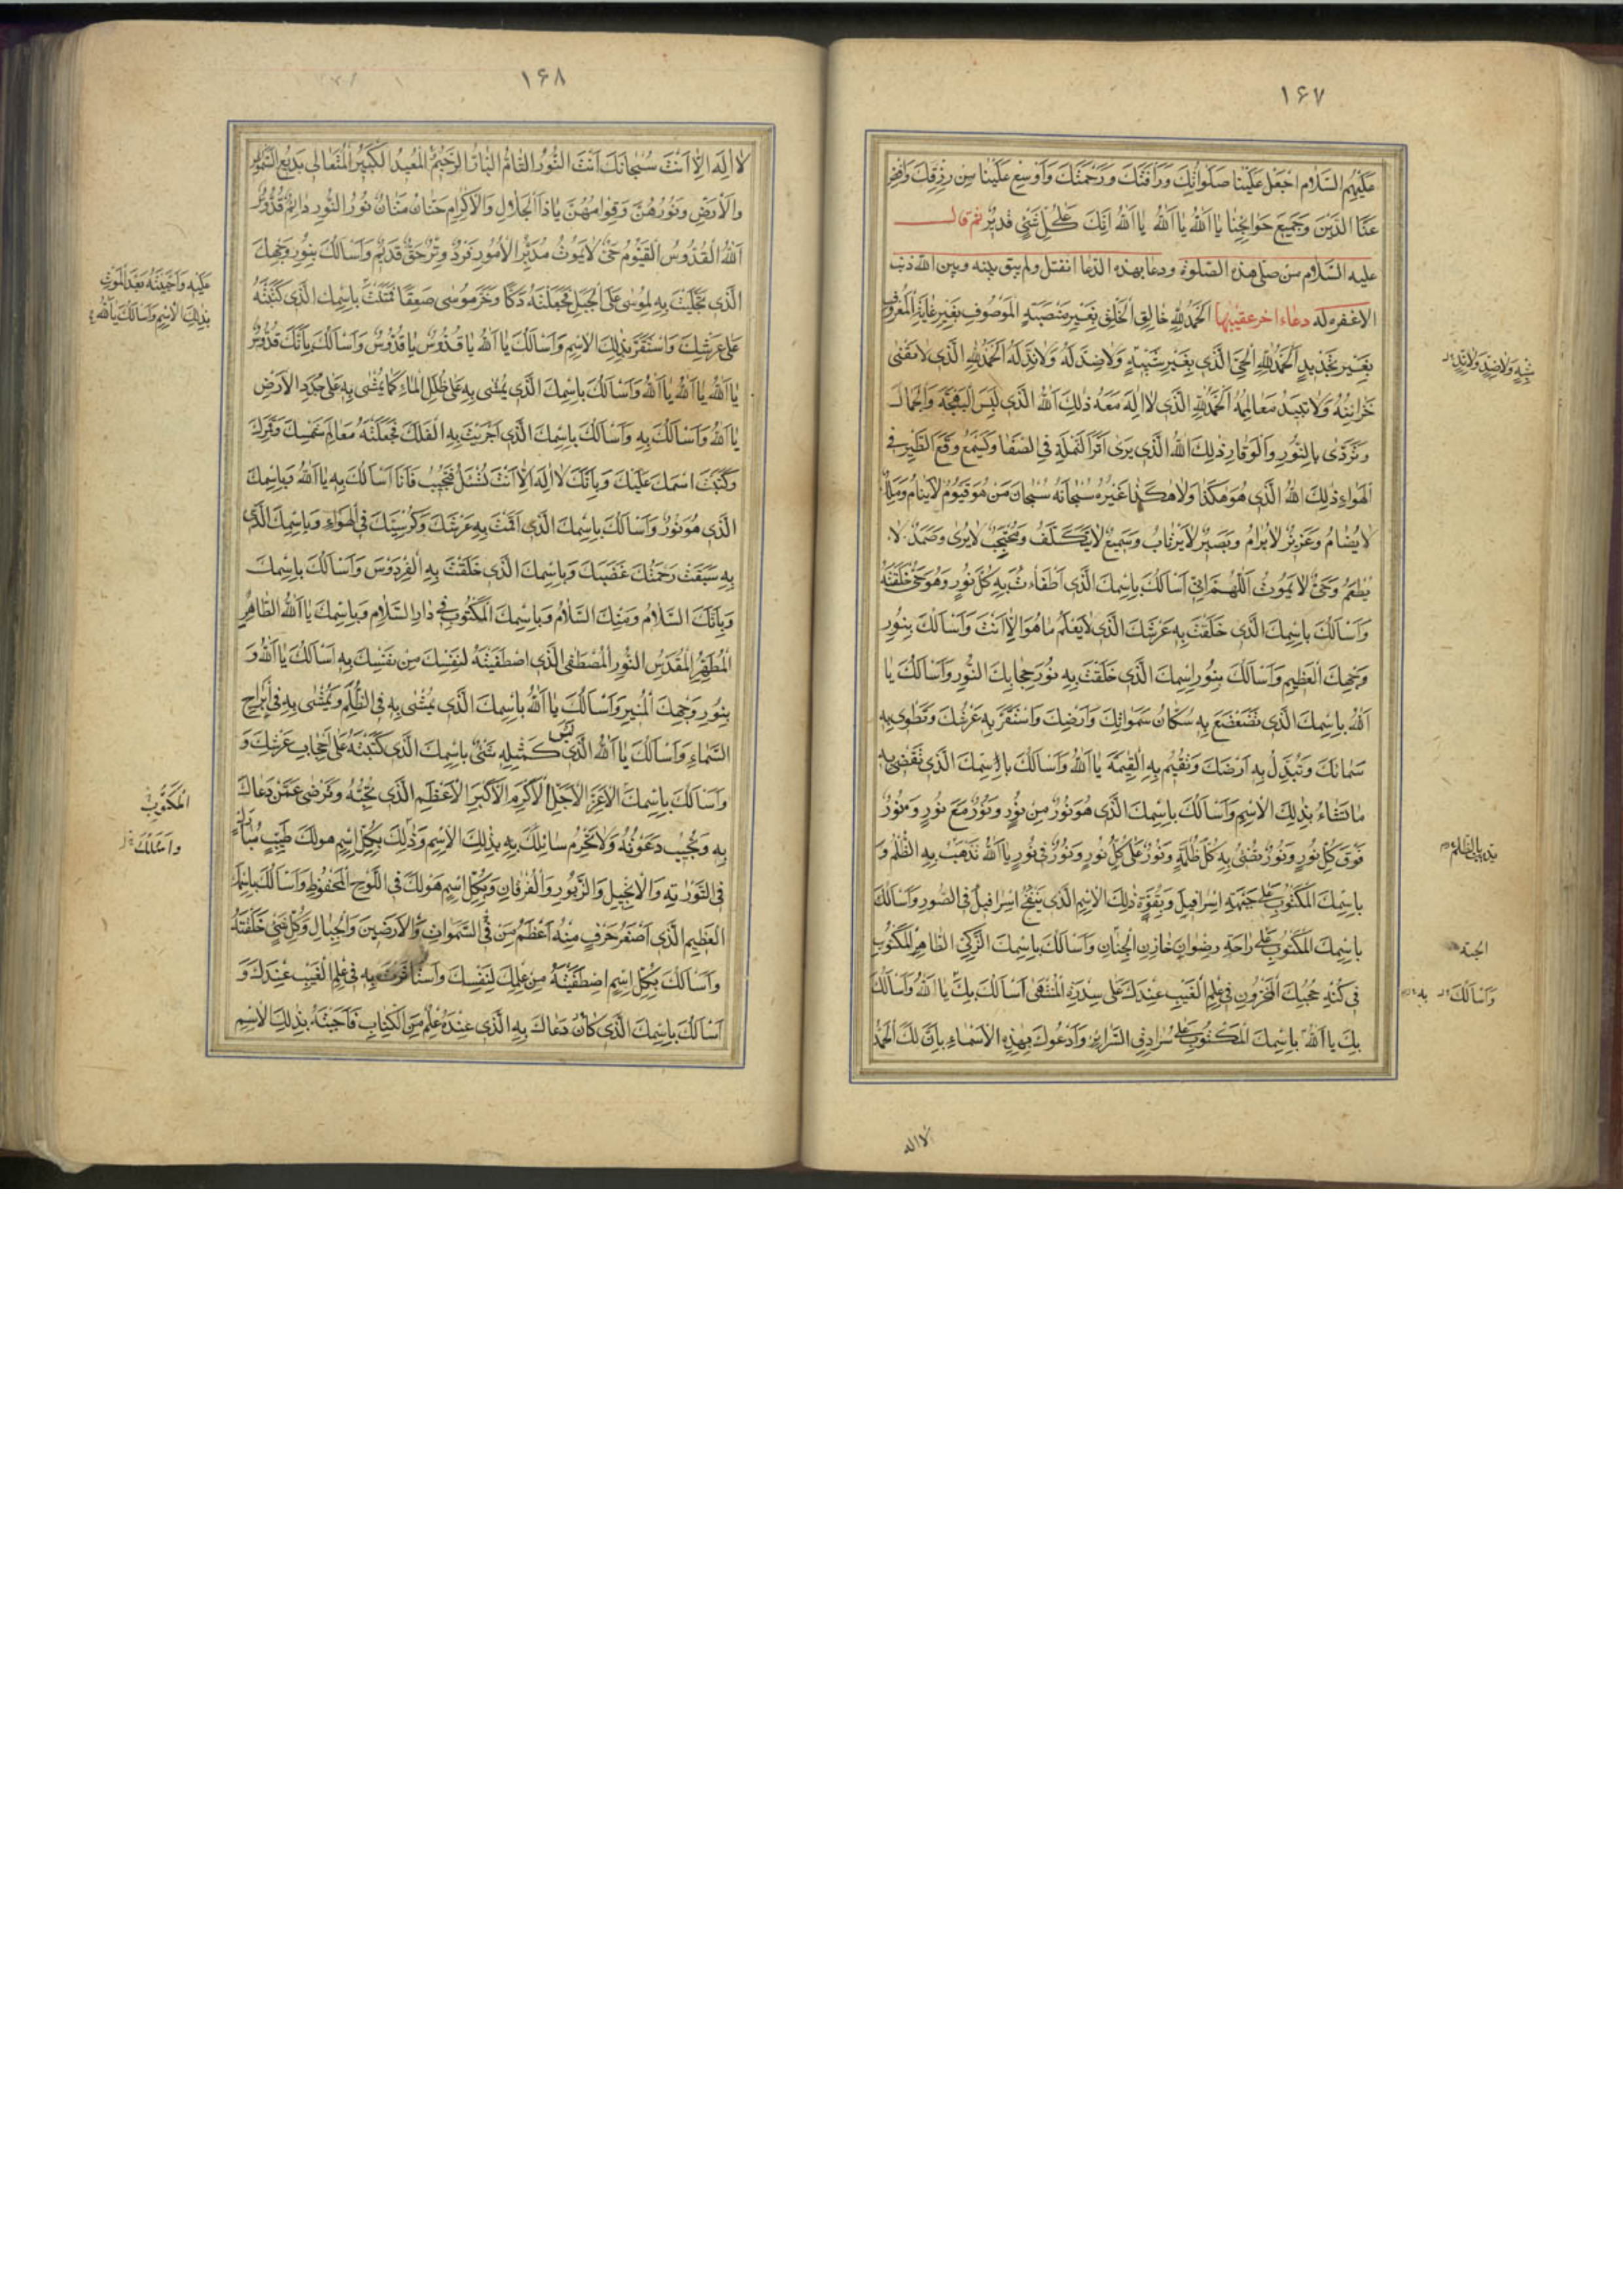 ۱۶۷
عَلَيْهِمُ السَّلَامُ اجْعَلْ عَلَيْنَا صَلَوَاتِكَ وَرَأْفَتَكَ وَرَحْمَتَكَ وَأَوْسِعْ عَلَيْنَا مِنْ رِزْقِكَ وَاقْضِ
عَنَّا الدَّيْنَ وَجَمِيعَ حَوَائِجِنَا يَا اَللّٰهُ يَا اَللّٰهُ يَا اَللّٰهُ اِنَّكَ عَلٰى كُلِّ شَيْءٍ قَدِيرٌ ثم قال
عليه السلام من صلى هذه الصلوة ودعا بهذه الدعا انفتل ولم يبق بينه وبين الله ذنب
الا غفره له دعاء اخر عقيبها اَلْحَمْدُ لِلّٰهِ خَالِقِ الْخَلْقِ بِغَيْرِ مَنْصَبَةٍ الْمَوْصُوفِ بِغَيْرِ غَايَةٍ الْمَعْرُوفِ
بِغَيْرِ تَحْدِيدٍ اَلْحَمْدُ لِلّٰهِ الْحَيِّ الَّذِي بِغَيْرِ شَبِيهٍ وَلَا ضِدَّ لَهُ وَلَا نِدَّ لَهُ اَلْحَمْدُ لِلّٰهِ الَّذِي لَا تَفْنَى
خَزَائِنُهُ وَلَا تَبِيدُ مَعَالِمُهُ اَلْحَمْدُ لِلّٰهِ الَّذِي لَا اِلٰهَ مَعَهُ ذٰلِكَ اللّٰهُ الَّذِي لَبِسَ الْبَهْجَةَ وَالْجَمَالَ
وَتَرَدّٰى بِالنُّورِ وَالْوَقَارِ ذٰلِكَ اللّٰهُ الَّذِي يَرٰى اَثَرَ النَّمْلَةِ فِي الصَّفَا وَيَسْمَعُ وَقْعَ الطَّيْرِ فِي
الْهَوَاءِ ذٰلِكَ اللّٰهُ الَّذِي هُوَ هٰكَذَا وَلَا هٰكَذَا غَيْرُهُ سُبْحَانَهُ سُبْحَانَ مَنْ هُوَ قَيُّومٌ لَا يَنَامُ وَمَلِكٌ
لَا يُضَامُ وَعَزِيزٌ لَا يُرَامُ وَبَصِيرٌ لَا يَرْتَابُ وَسَمِيعٌ لَا يَتَكَلَّفُ وَمُحْتَجِبٌ لَا يُرٰى وَصَمَدٌ لَا
يُطْعَمُ وَحَيٌّ لَا يَمُوتُ اَللّٰهُمَّ اِنِّي اَسْاَلُكَ بِاسْمِكَ الَّذِي اَطْفَأْتَ بِهِ كُلَّ نُورٍ وَهُوَ حَيٌّ خَلَقْتَهُ
وَاَسْاَلُكَ بِاسْمِكَ الَّذِي خَلَقْتَ بِهِ عَرْشَكَ الَّذِي لَا يَعْلَمُ مَا هُوَ اِلَّا اَنْتَ وَاَسْاَلُكَ بِنُورِ
وَجْهِكَ الْعَظِيمِ وَاَسْاَلُكَ بِنُورِ اسْمِكَ الَّذِي خَلَقْتَ بِهِ نُورَ حِجَابِكَ النُّورِ وَاَسْاَلُكَ يَا
اَللّٰهُ بِاسْمِكَ الَّذِي تَضَعْضَعَ بِهِ سُكَّانُ سَمٰوَاتِكَ وَاَرْضِكَ وَاسْتَقَرَّ بِهِ عَرْشُكَ وَتَطْوِي بِهِ
سَمَائَكَ وَتُبَدِّلُ بِهِ اَرْضَكَ وَتُقِيمُ بِهِ الْقِيمَةَ يَا اَللّٰهُ وَاَسْاَلُكَ بِاسْمِكَ الَّذِي تَقْضِي بِهِ
مَا تَشَاءُ بِذٰلِكَ الْاِسْمِ وَاَسْاَلُكَ بِاسْمِكَ الَّذِي هُوَ نُورٌ مِنْ نُورٍ وَنُورٌ مَعَ نُورٍ وَنُورٌ
فَوْقَ كُلِّ نُورٍ وَنُورٌ يُضِيءُ بِهِ كُلَّ ظُلْمَةٍ وَنُورٌ عَلٰى كُلِّ نُورٍ وَنُورٌ فِي نُورٍ يَا اَللّٰهُ تَذْهَبُ بِهِ الظُّلَمُ وَ
بِاسْمِكَ الْمَكْتُوبِ عَلٰى جَبْهَةِ اِسْرَافِيلَ وَبِقُوَّةِ ذٰلِكَ الْاِسْمِ الَّذِي يَنْفُخُ اِسْرَافِيلُ فِي الصُّورِ وَاَسْاَلُكَ
بِاسْمِكَ الْمَكْتُوبِ عَلٰى رَاحَةِ رِضْوَانَ خَازِنِ الْجِنَانِ وَاَسْاَلُكَ بِاسْمِكَ الزَّكِيِّ الطَّاهِرِ الْمَكْتُوبِ
فِي كُنْهِ حُجُبِكَ الْمَخْزُونِ فِي عِلْمِ الْغَيْبِ عِنْدَكَ عَلٰى سِدْرَةِ الْمُنْتَهٰى اَسْاَلُكَ بِكَ يَا اَللّٰهُ وَاَسْاَلُكَ
بِكَ يَا اَللّٰهُ بِاسْمِكَ الْمَكْتُوبِ عَلٰى سُرَادِقِ السَّرَائِرِ وَاَدْعُوكَ بِهٰذِهِ الْاَسْمَاءِ بِاَنَّ لَكَ الْحَمْدَ
شَبِهٍ وَلَا ضِدٍّ وَلَا نِدٍّ
الجنة
وَاَسْاَلُكَ به
لا اله
۱۶۸
لَا اِلٰهَ اِلَّا اَنْتَ سُبْحَانَكَ اَنْتَ النُّورُ التَّامُّ الْبَارُّ الرَّحِيمُ الْمُعِيدُ الْكَبِيرُ الْمُتَعَالِي بَدِيعُ السَّمٰوَاتِ
وَالْاَرْضِ وَنُورُهُنَّ وَقِوَامُهُنَّ يَا ذَا الْجَلَالِ وَالْاِكْرَامِ حَنَّانٌ مَنَّانٌ نُورُ النُّورِ دَائِمٌ قُدُّوسٌ
اَللّٰهُ الْقُدُّوسُ الْقَيُّومُ حَيٌّ لَا يَمُوتُ مُدَبِّرُ الْاُمُورِ فَرْدٌ وِتْرٌ حَقٌّ قَدِيمٌ وَاَسْاَلُكَ بِنُورِ وَجْهِكَ
الَّذِي تَجَلَّيْتَ بِهِ لِمُوسٰى عَلَى الْجَبَلِ فَجَعَلْتَهُ دَكًّا وَخَرَّ مُوسٰى صَعِقًا فَمَنَنْتَ بِاسْمِكَ الَّذِي كَتَبْتَهُ
عَلٰى عَرْشِكَ وَاسْتَقَرَّ بِذٰلِكَ الْاِسْمِ وَاَسْاَلُكَ يَا اَللّٰهُ يَا قُدُّوسُ يَا قُدُّوسُ وَاَسْاَلُكَ بِاَنَّكَ قُدُّوسٌ
يَا اَللّٰهُ يَا اَللّٰهُ يَا اَللّٰهُ وَاَسْاَلُكَ بِاسْمِكَ الَّذِي يُمْشٰى بِهِ عَلٰى ظُلَلِ الْمَاءِ كَمَا يُمْشٰى بِهِ عَلٰى جَدَدِ الْاَرْضِ
يَا اَللّٰهُ وَاَسْاَلُكَ بِهِ وَاَسْاَلُكَ بِاسْمِكَ الَّذِي اَجْرَيْتَ بِهِ الْفَلَكَ فَجَعَلْتَهُ مَعَالِمَ شَمْسِكَ وَقَمَرِكَ
وَكَتَبْتَ اسْمَكَ عَلَيْكَ وَبِاَنَّكَ لَا اِلٰهَ اِلَّا اَنْتَ تُسْئَلُ فَتُجِيبُ فَاَنَا اَسْاَلُكَ بِهِ يَا اَللّٰهُ وَبِاسْمِكَ
الَّذِي هُوَ نُورٌ وَاَسْاَلُكَ بِاسْمِكَ الَّذِي اَقَمْتَ بِهِ عَرْشَكَ وَكُرْسِيَّكَ فِي الْهَوَاءِ وَبِاسْمِكَ الَّذِي
بِهِ سَبَقَتْ رَحْمَتُكَ غَضَبَكَ وَبِاسْمِكَ الَّذِي خَلَقْتَ بِهِ الْفِرْدَوْسَ وَاَسْاَلُكَ بِاسْمِكَ
وَبِاَنَّكَ السَّلَامُ وَمِنْكَ السَّلَامُ وَبِاسْمِكَ الْمَكْتُوبِ فِي دَارِ السَّلَامِ وَبِاسْمِكَ يَا اَللّٰهُ الطَّاهِرِ
الْمُطَهَّرِ الْمُقَدَّسِ النُّورِ الْمُصْطَفَى الَّذِي اصْطَفَيْتَهُ لِنَفْسِكَ مِنْ نَفْسِكَ بِهِ اَسْاَلُكَ يَا اَللّٰهُ وَ
بِنُورِ وَجْهِكَ الْمُنِيرِ وَاَسْاَلُكَ يَا اَللّٰهُ بِاسْمِكَ الَّذِي يُمْشٰى بِهِ فِي الظُّلَمِ وَيُمْشٰى بِهِ فِي اَبْرَاجِ
السَّمَاءِ وَاَسْاَلُكَ يَا اَللّٰهُ الَّذِي لَيْسَ كَمِثْلِهِ شَيْءٌ بِاسْمِكَ الَّذِي كَتَبْتَهُ عَلٰى حِجَابِ عَرْشِكَ وَ
وَاَسْاَلُكَ بِاسْمِكَ الْاَعَزِّ الْاَجَلِّ الْاَكْرَمِ الْاَكْبَرِ الْاَعْظَمِ الَّذِي تُحِبُّهُ وَتَرْضٰى عَمَّنْ دَعَاكَ
بِهِ وَتُجِيبُ دَعْوَتَهُ وَلَا تَحْرِمُ سَائِلَكَ بِهِ بِذٰلِكَ الْاِسْمِ وَذٰلِكَ بِكُلِّ اسْمٍ هو لَكَ طَيِّبٍ مُبَارَكٍ
فِي التَّوْرٰيةِ وَالْاِنْجِيلِ وَالزَّبُورِ وَالْفُرْقَانِ وَبِكُلِّ اسْمٍ هُوَ لَكَ فِي اللَّوْحِ الْمَحْفُوظِ وَاَسْاَلُكَ بِاسْمِكَ
الْعَظِيمِ الَّذِي اَصْغَرُ حَرْفٍ مِنْهُ اَعْظَمُ مِنَ فِي السَّمٰوَاتِ وَالْاَرَضِينَ وَالْجِبَالِ وَكُلِّ شَيْءٍ خَلَقْتَهُ
وَاَسْاَلُكَ بِكُلِّ اسْمٍ اصْطَفَيْتَهُ مِنْ عِلْمِكَ لِنَفْسِكَ وَاسْتَأْثَرْتَ بِهِ فِي عِلْمِ الْغَيْبِ عِنْدَكَ وَ
اَسْاَلُكَ بِاسْمِكَ الَّذِي كَانَ دَعَاكَ بِهِ الَّذِي عِنْدَهُ عِلْمٌ مِنَ الْكِتَابِ فَاَجَبْتَهُ بِذٰلِكَ الْاِسْمِ
عَلَيْهِ وَاَحْيَيْتَهُ بَعْدَ الْمَوْتِ
بِذٰلِكَ الْاِسْمِ وَاَسْاَلُكَ يَا اَللّٰهُ
الْمَكْتُوبِ
وَاَسْئَلُكَ